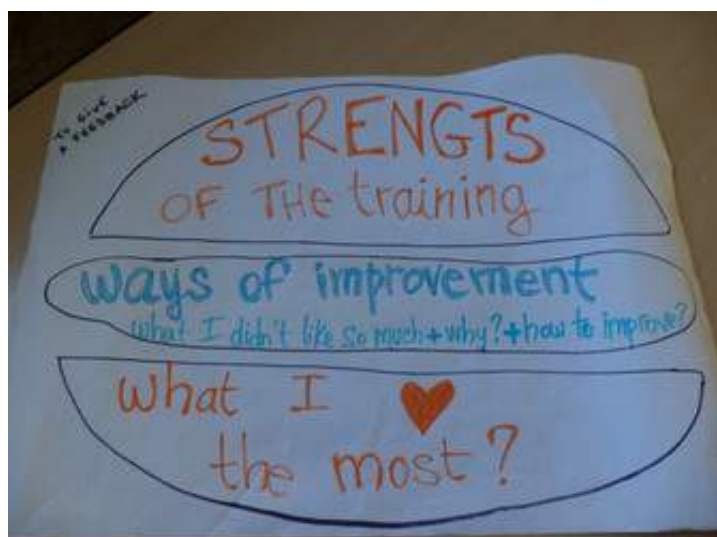 TO GIVE
A FEEDBACK
STRENGTS
OF THe training
ways of improvement
what I didn't like so much+why?+how to improve?
what I ♥
the most?